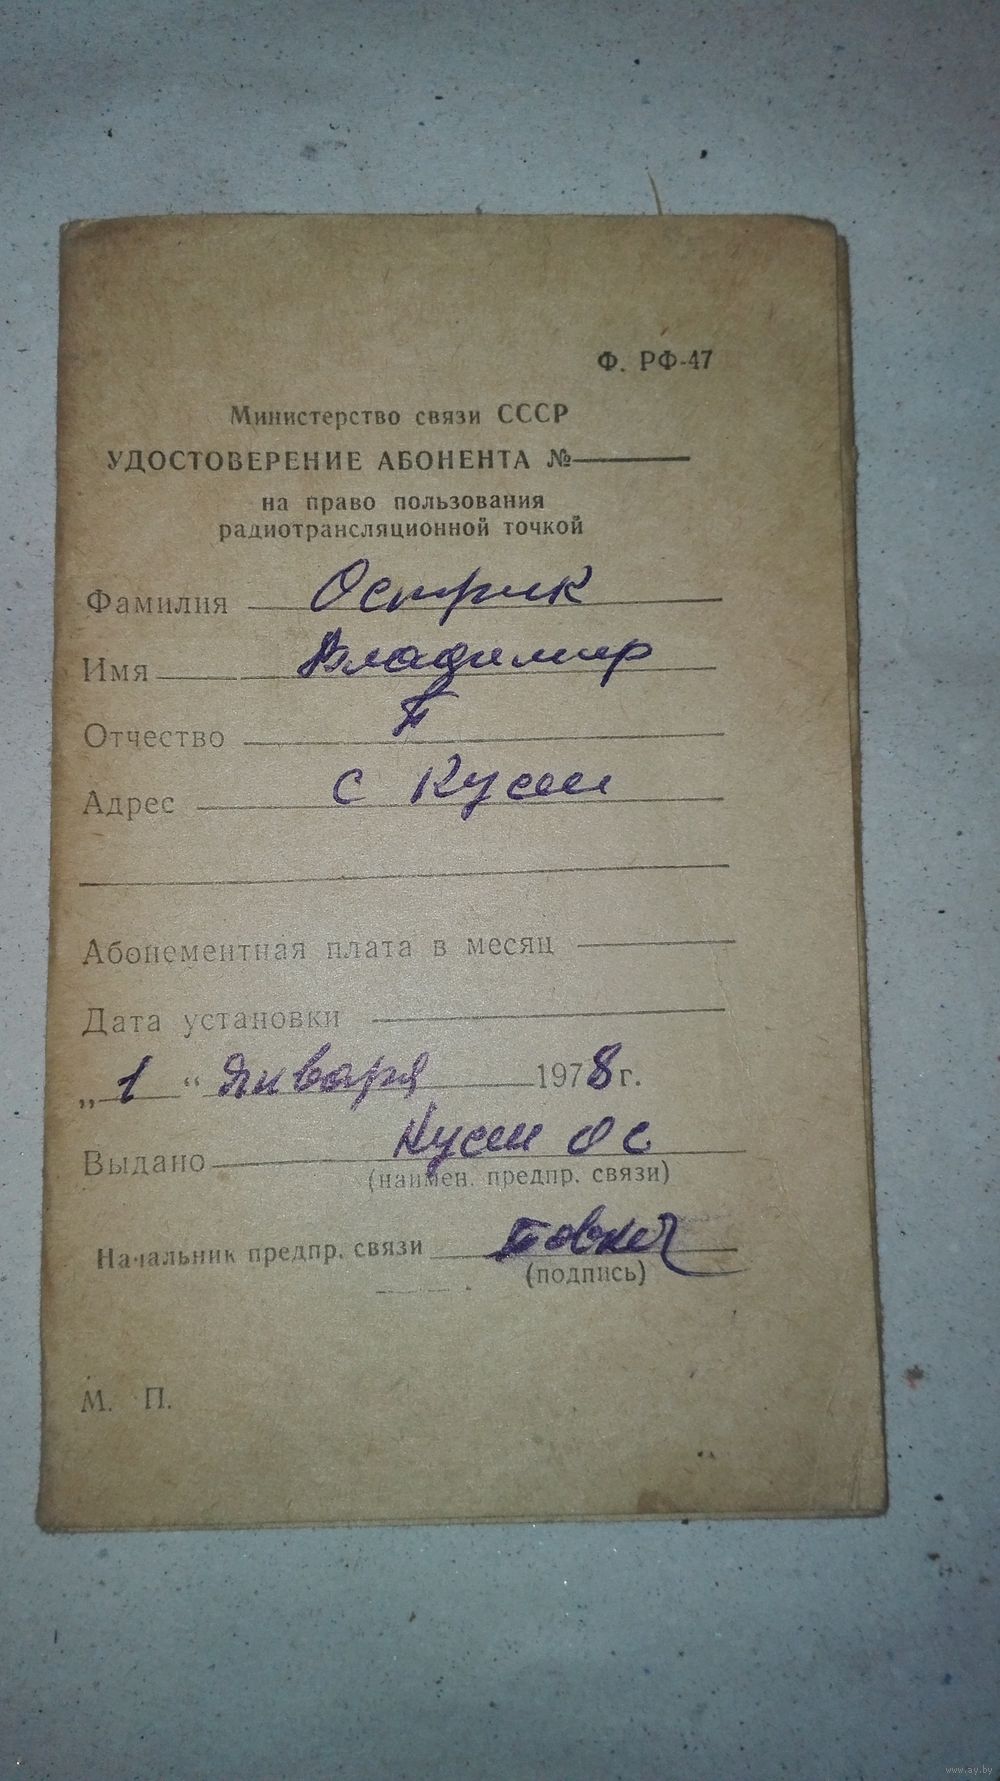 Ф. РФ-47
Министерство связи СССР
УДОСТОВЕРЕНИЕ АБОНЕНТА №
на право пользования
радиотрансляционной точкой
Фамилия Острик
Имя Владимир
Отчество П
Адрес с Кусин
Абонементная плата в месяц
Дата установки
„1“ января 1978 г.
Выдано Кусин ос
(наимен. предпр. связи)
Начальник предпр. связи
(подпись)
М. П.
www.ay.by